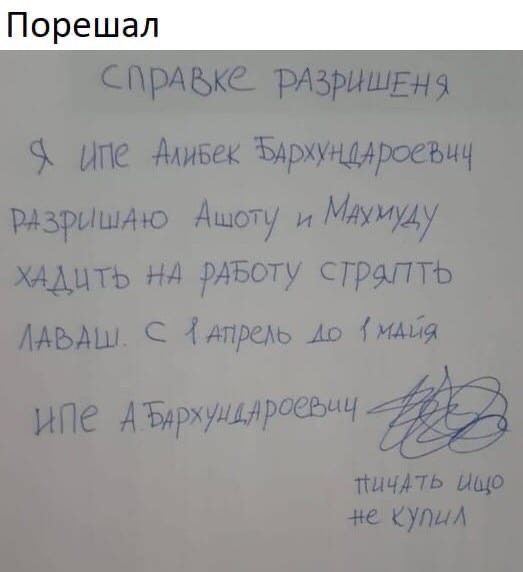 Порешал
СПРАВКЕ РАЗРИШЕНЯ
Я ИПЕ АЛИБЕК БАРХУНДАРОЕВИЧ
РАЗРИШАЮ АШОТУ И МАХМУДУ
ХАДИТЬ НА РАБОТУ СТРЯПТЬ
ЛАВАШ. С 1 АПРЕЛЬ ДО 1 МАЙЯ
ИПЕ А.БАРХУНДАРОЕВИЧ
ПИЧАТЬ ИЩО
НЕ КУПИЛ